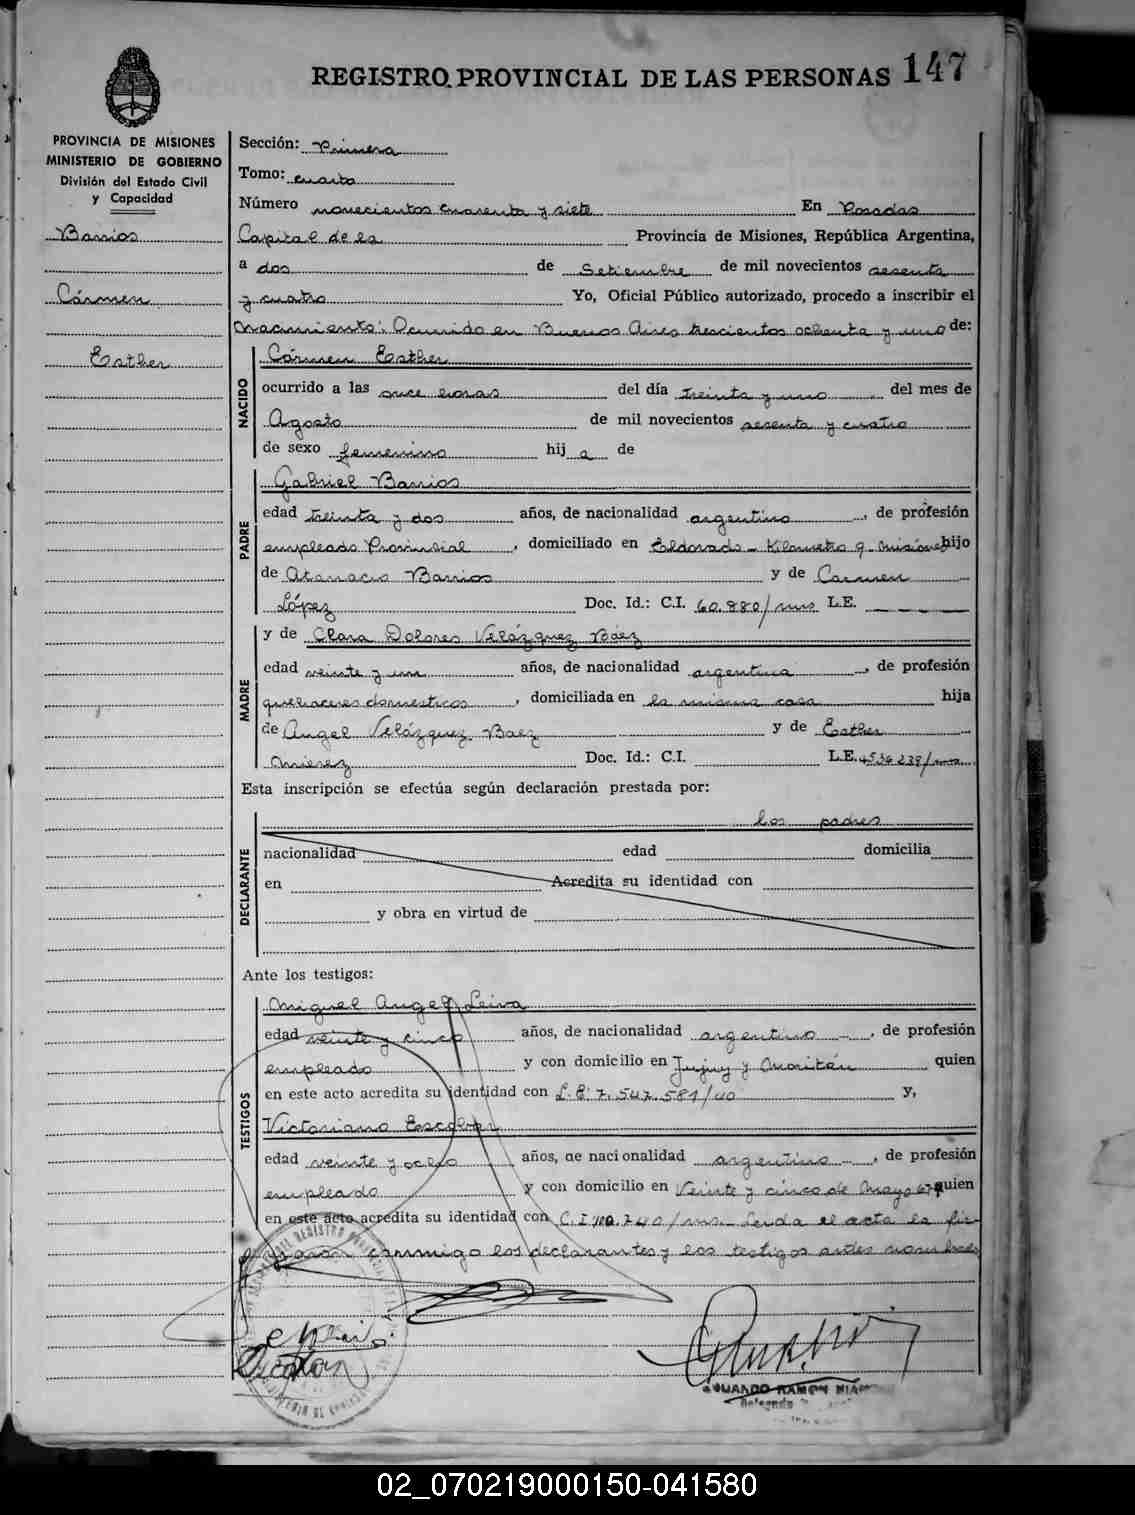 REGISTRO PROVINCIAL DE LAS PERSONAS 147
PROVINCIA DE MISIONES
MINISTERIO DE GOBIERNO
División del Estado Civil
y Capacidad
Barrios
Cármen
Esther
Sección: Primera
Tomo: cuarto
Número novecientos cuarenta y siete En Posadas
Capital de la Provincia de Misiones, República Argentina,
a dos de Setiembre de mil novecientos sesenta
y cuatro Yo, Oficial Público autorizado, procedo a inscribir el
nacimiento: Ocurrido en Buenos Aires trescientos ochenta y uno de:
NACIDO
Cármen Esther
ocurrido a las once horas del día treinta y uno del mes de
Agosto de mil novecientos sesenta y cuatro
de sexo femenino hij a de
PADRE
Gabriel Barrios
edad treinta y dos años, de nacionalidad argentino, de profesión
empleado Provinsial, domiciliado en Eldorado - Kilometro 9 - Misiones hijo
de Atanacio Barrios y de Carmen
López Doc. Id.: C.I. 60.880/mis L.E.
MADRE
y de Clara Dolores Velázquez Báez
edad veinte y un años, de nacionalidad argentina, de profesión
quehaceres domesticos, domiciliada en la misma casa hija
de Angel Velázquez Baez y de Esther
Mierez Doc. Id.: C.I. L.E. 4536239/
Esta inscripción se efectúa según declaración prestada por:
los padres
DECLARANTE
nacionalidad edad domicilia
en Acredita su identidad con
y obra en virtud de
Ante los testigos:
TESTIGOS
Miguel Angel Leiva
edad veinte y cinco años, de nacionalidad argentino, de profesión
empleado y con domicilio en Jujuy y quien
en este acto acredita su identidad con L.E. 7.547.581/40 y,
Victoriano Escobar
edad veinte y ocho años, de nacionalidad argentino, de profesión
empleado y con domicilio en Veinte y cinco de Mayo quien
en este acto acredita su identidad con C.I. /mis. Leida el acta la fir-
maron conmigo los declarantes y los testigos antes nombrados
EDUARDO RAMON
Delegado
02_070219000150-041580